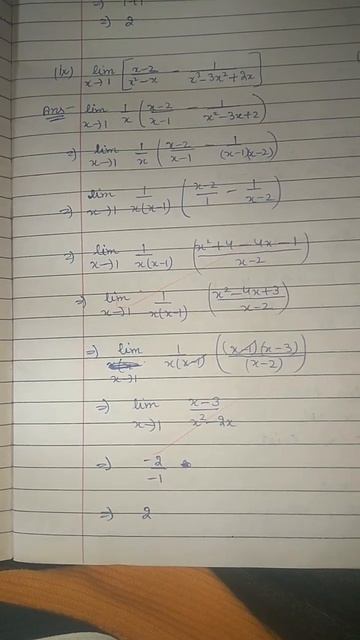 ⇒ 2
(ix) lim x→1 [ (x-2)/(x²-x) - 1/(x³-3x²+2x) ]
Ans- lim x→1 1/x ( (x-2)/(x-1) - 1/(x²-3x+2) )
⇒ lim x→1 1/x ( (x-2)/(x-1) - 1/((x-1)(x-2)) )
⇒ lim x→1 1/(x(x-1)) ( (x-2)/1 - 1/(x-2) )
⇒ lim x→1 1/(x(x-1)) ( (x²+4-4x-1)/(x-2) )
⇒ lim x→1 1/(x(x-1)) ( (x²-4x+3)/(x-2) )
⇒ lim x→1 1/(x(x-1)) ( ((x-1)(x-3))/((x-2)) )
⇒ lim x→1 (x-3)/(x²-2x)
⇒ -2/-1
⇒ 2